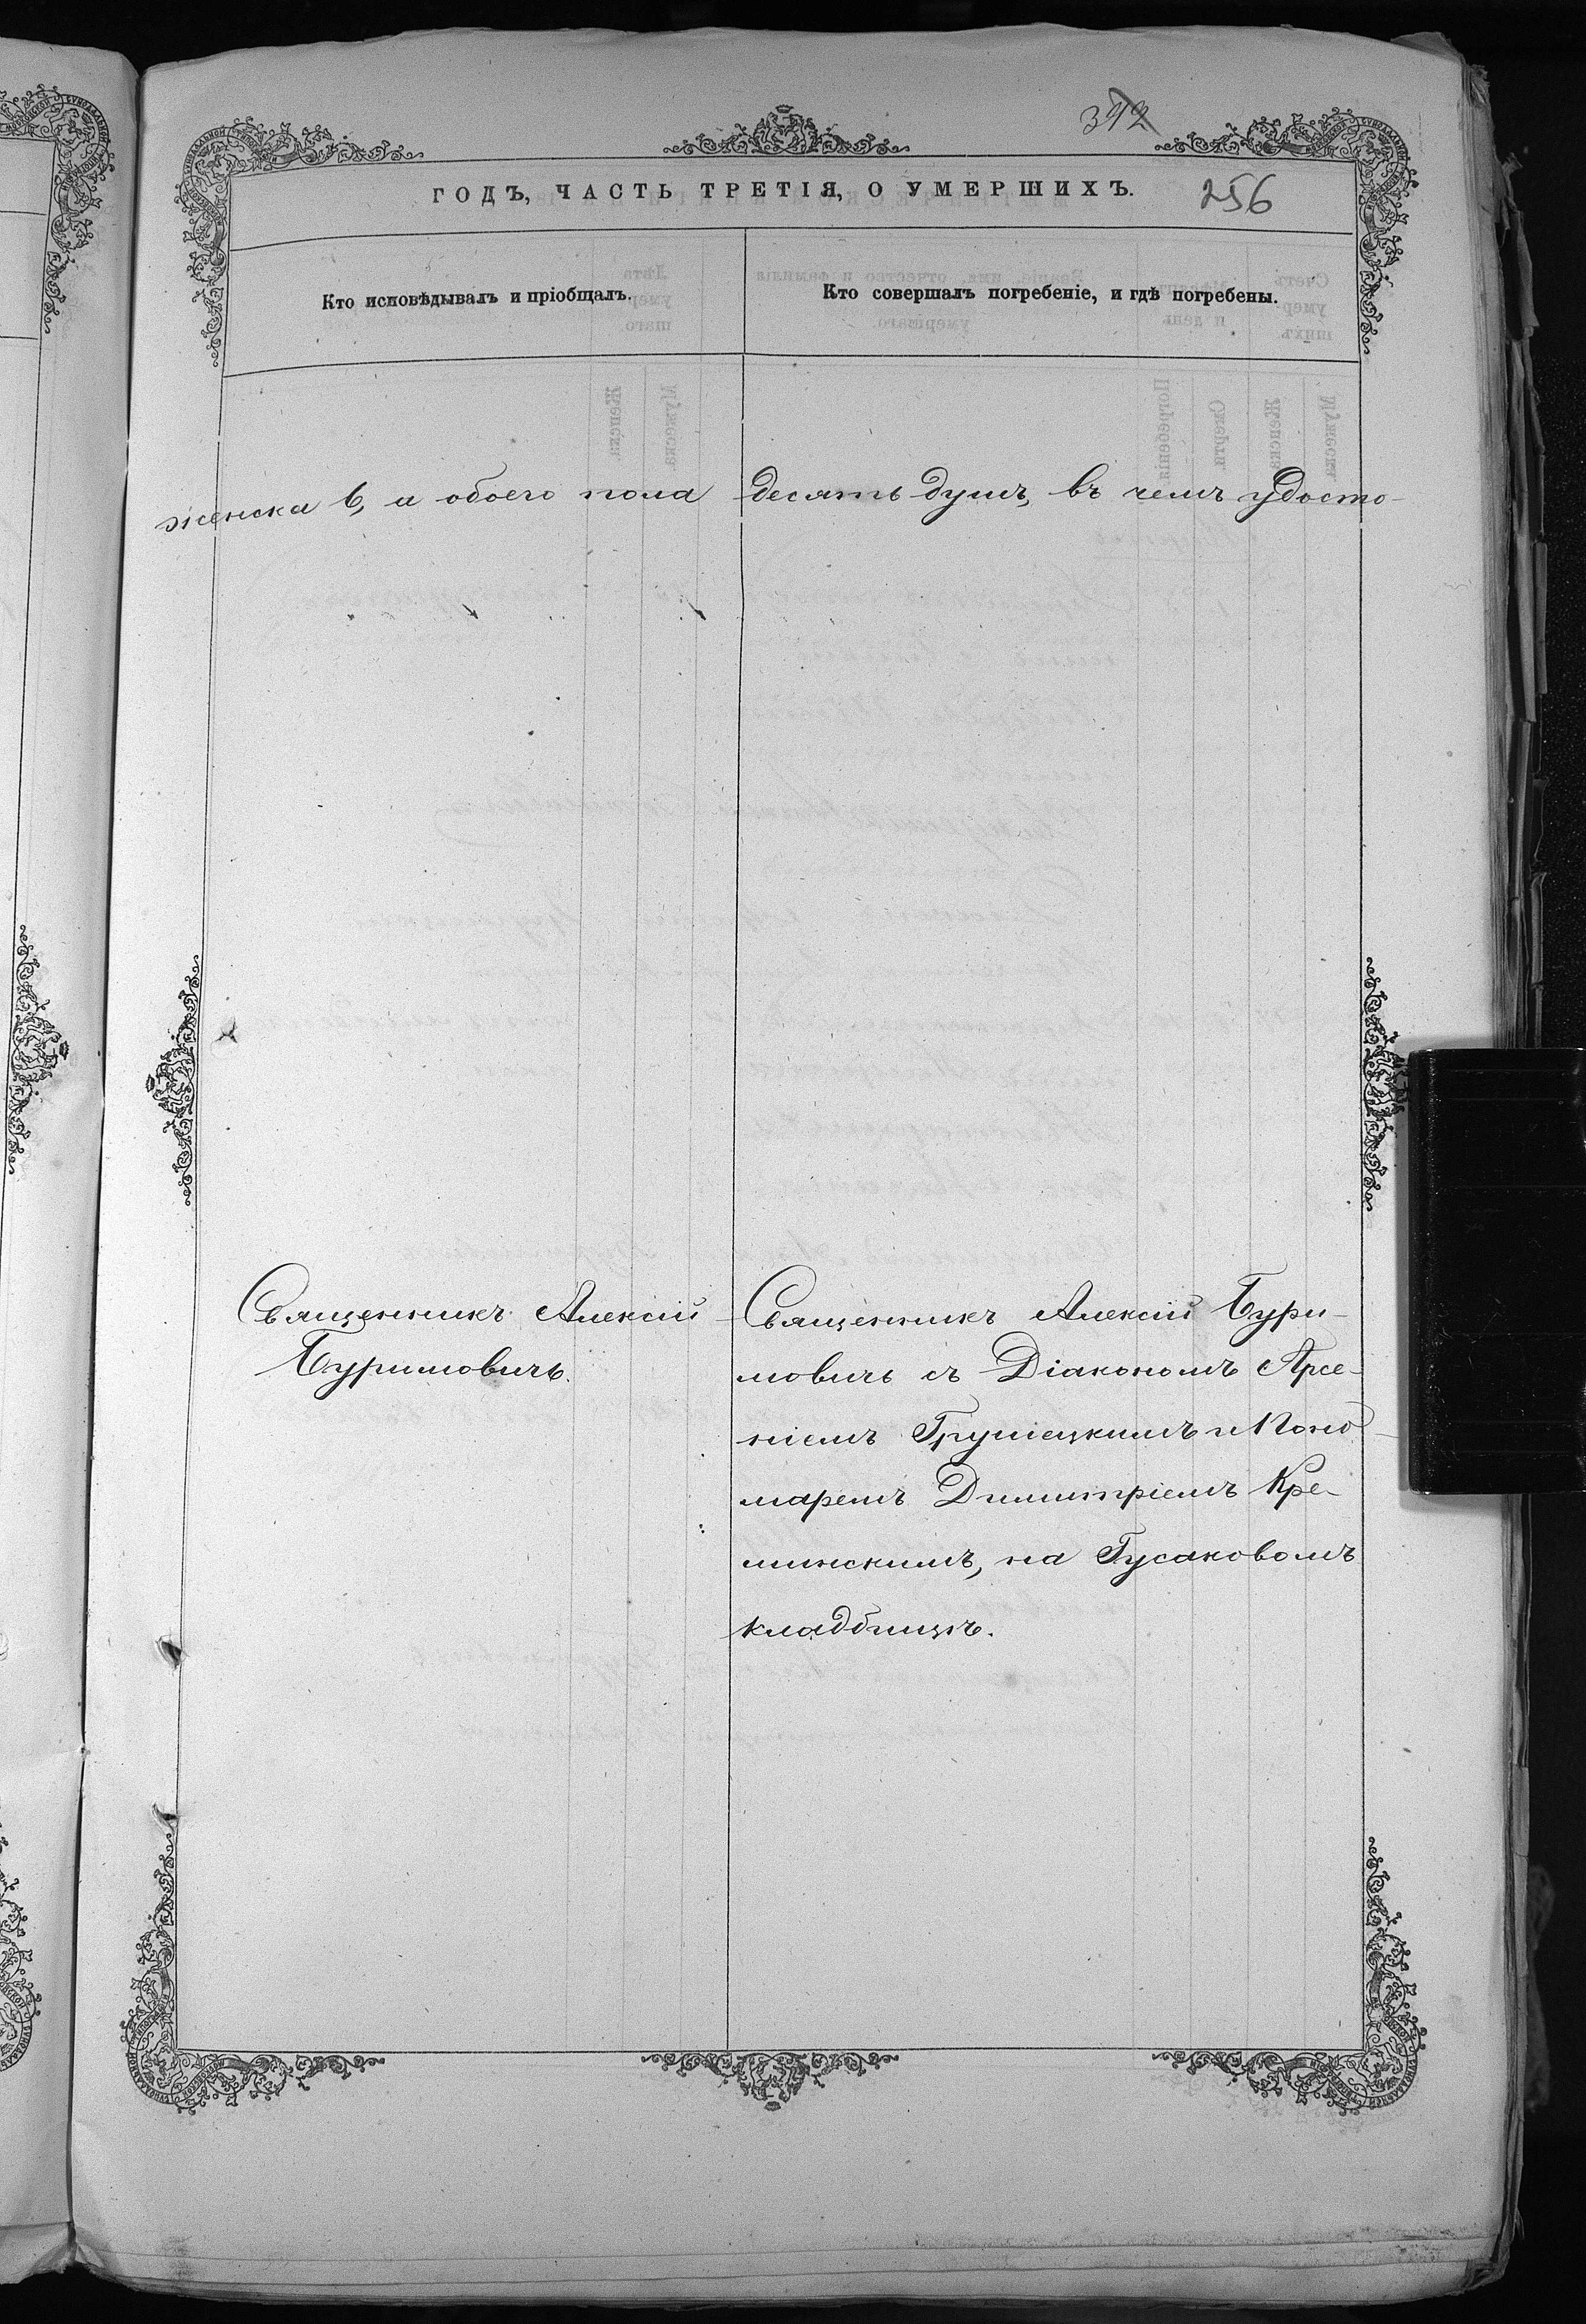 392
ГОДЪ, ЧАСТЬ ТРЕТІЯ, О УМЕРШИХЪ. 256
Кто исповѣдывалъ и пріобщалъ.
Кто совершалъ погребеніе, и гдѣ погребены.
женска 6, а обоего пола десять душъ, въ чемъ удосто-
Священникъ Алексій
Буримовичъ.
Священникъ Алексій Бури-
мовичъ съ Діакономъ Арсе-
ніемъ Грушецкимъ и Поно-
маремъ Димитріемъ Кре-
минскимъ, на Гусаковомъ
кладбищѣ.